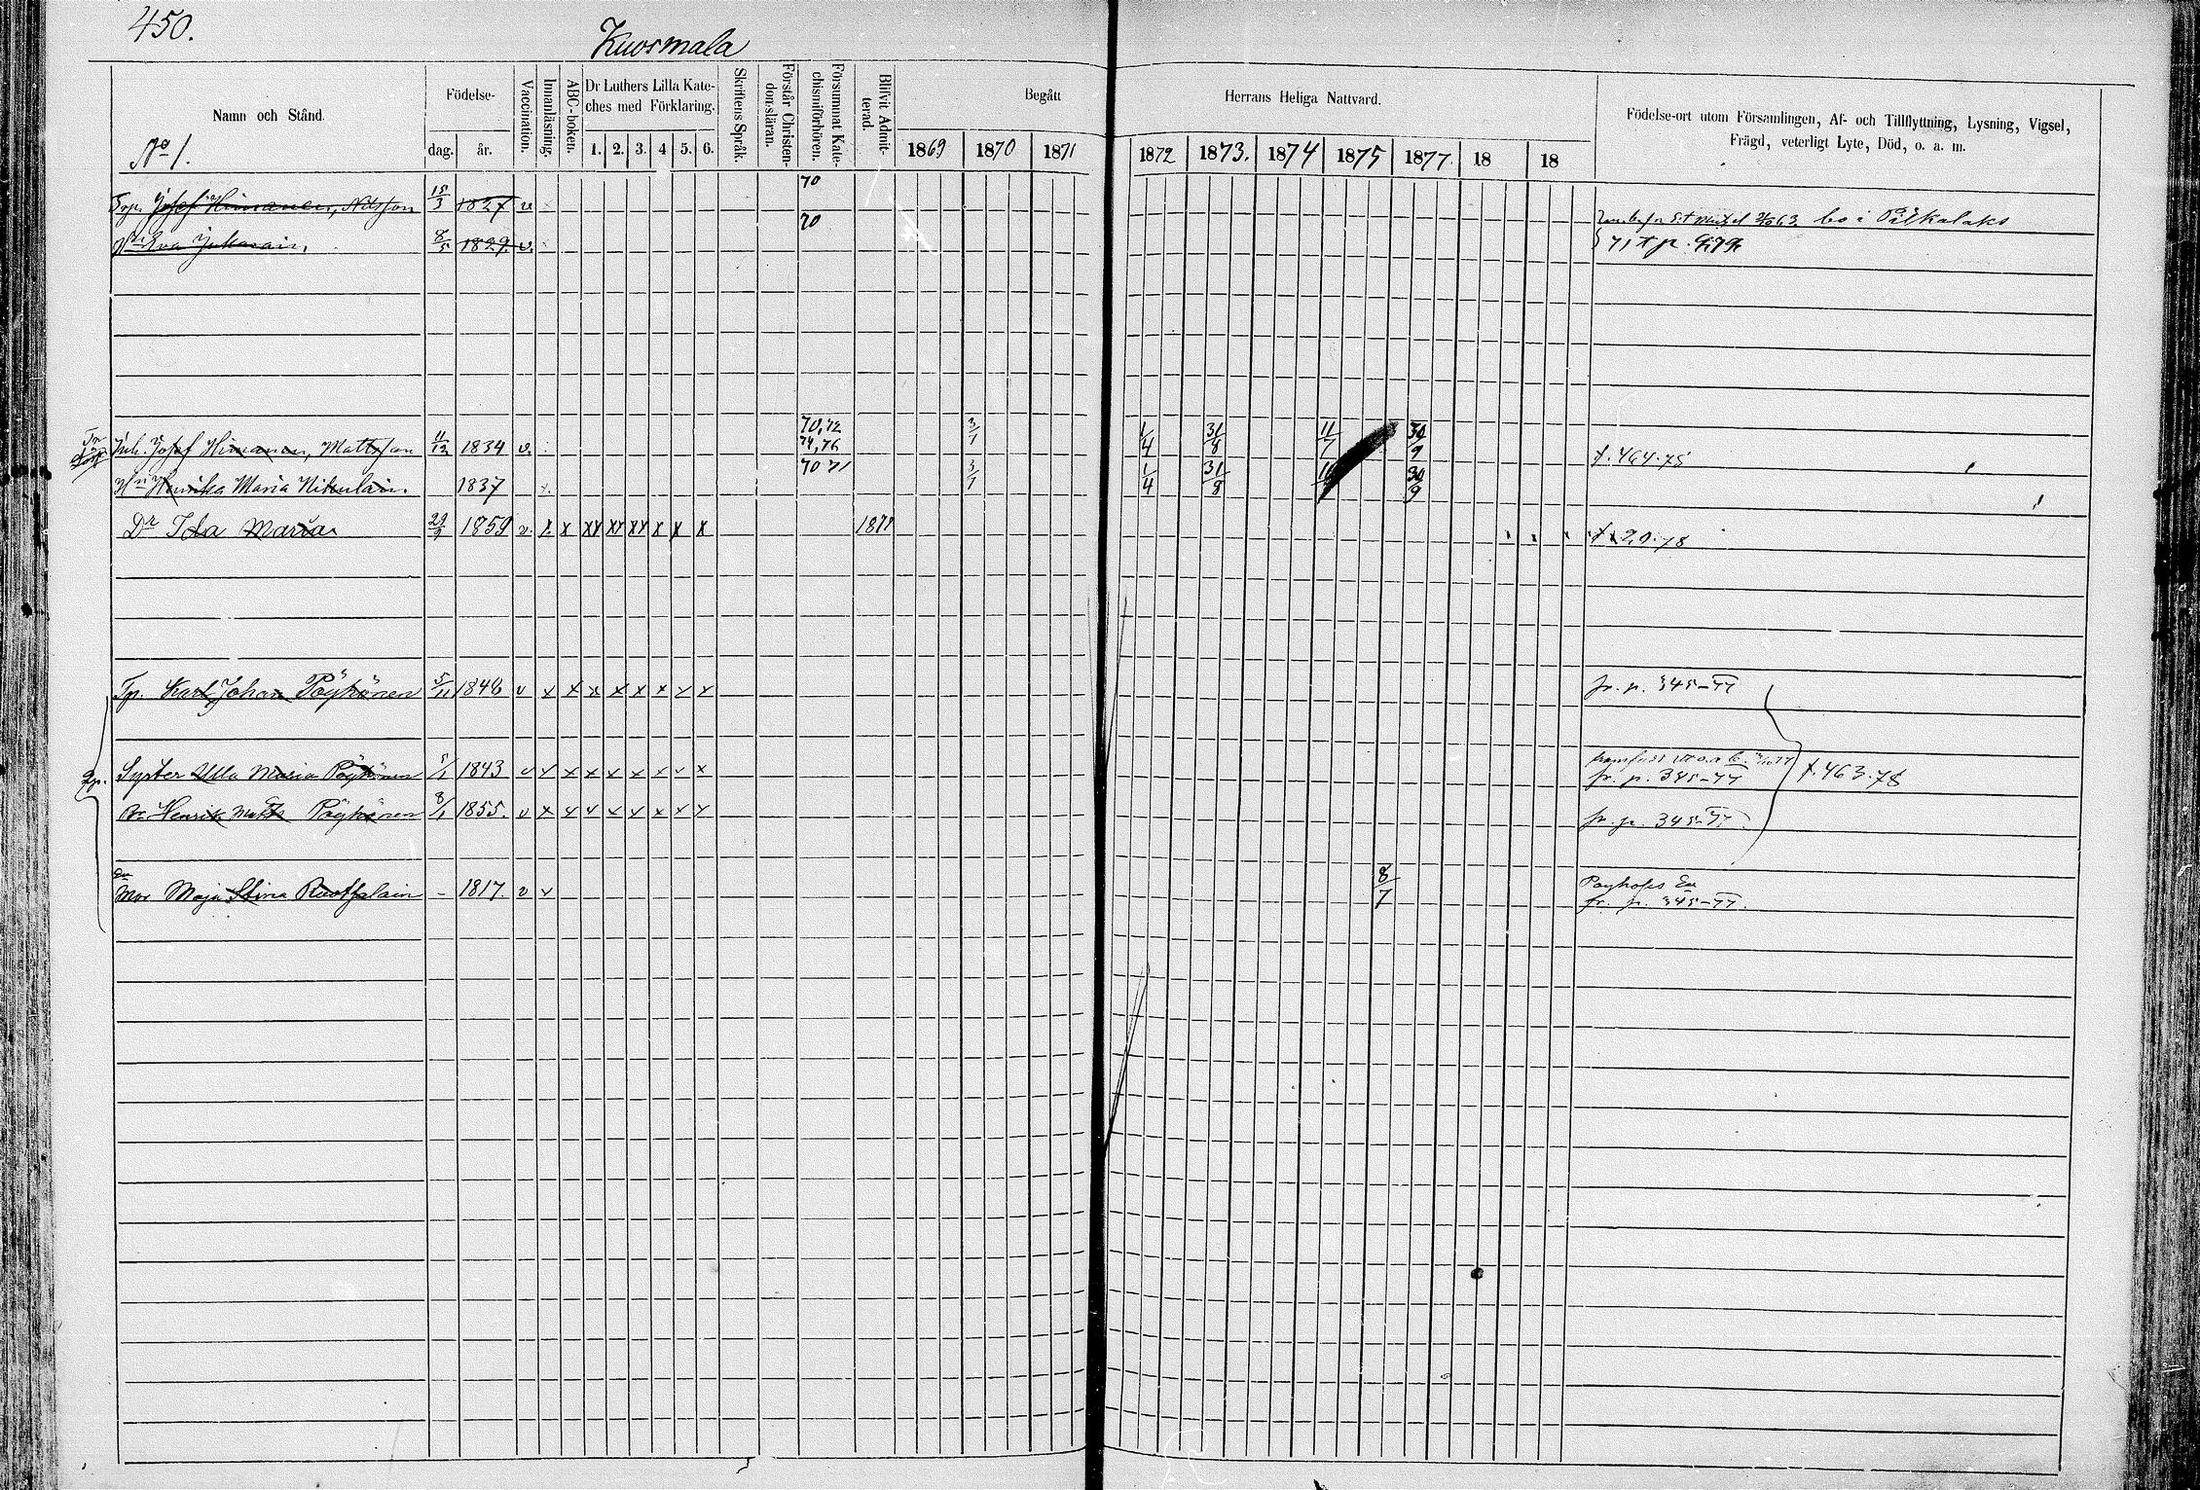 450.
Kuosmala
Namn och Stånd.
No 1.
Födelse-
dag. år.
Vaccination.
Innanläsning.
ABC-boken.
Dr Luthers Lilla Kate-
ches med Förklaring.
1. 2. 3. 4 5. 6.
Skriftens Språk.
Förstår Christen-
domsläran.
Försummat Kate-
chismiförhören.
Blifvit Admit-
terad.
Begått
Herrans Heliga Nattvard.
1869 1870 1871 1872 1873. 1874 1875 1877. 18 18
Födelse-ort utom Församlingen, Af- och Tillflyttning, Lysning, Vigsel,
Frägd, veterligt Lyte, Död, o. a. m.
Josef Himanen, Nilsson 15/3 1827 v 70
bo i Pitkälaks
Eva Jukarain. 8/5 1829. v. 70
Inh. Josef Himanen, Mattsson 11/12 1834 v. 70,72 74,76 3/1 1/4 31/8 11/7 30/9 t. 464.78
Hu Henrika Maria Nikulain. 1837 x 70 71 3/1 1/4 31/8 30/9
Dr Ida Maria 1859 v. x x xx xx xx x x x
Tp. Karl Johan Pöyhönen 5/11 1846 v x x x x x x x x fr. p. 345-77
Syster Ulla Maria Pöyhönen 5/1 1843 v x x x x x x x x fr. p. 345-77 t. 463.78
Br Henrik Matts Pöyhönen 8/1 1855. v x x x x x x x x fr. p. 345-77
Mor Maja Stina - 1817 v x 8/7 fr. p. 345-77.